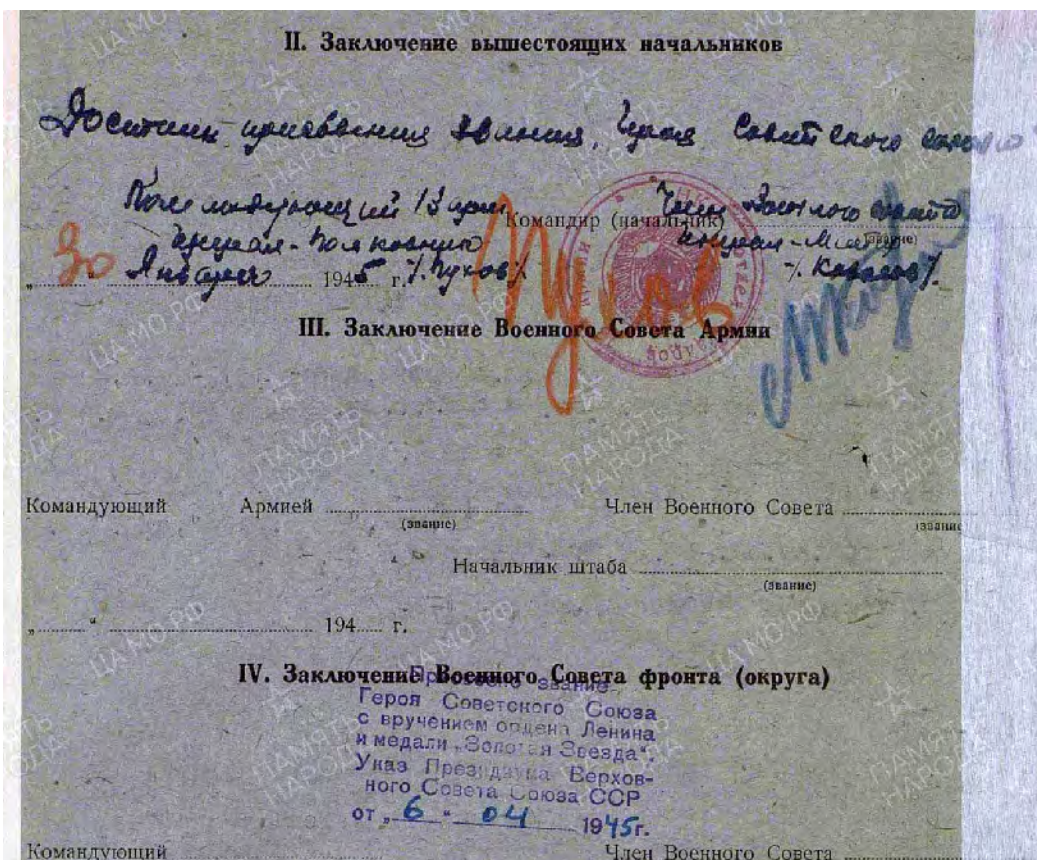 II. Заключение вышестоящих начальников
Достоин присвоения звания, Героя Советского Союза
Командующий 13 арм Член Военного Совета
Командир (начальник)
генерал-полковник генерал-М
(звание)
"30" Января 1945 г. /. Пухов /. /. Козлов /.
III. Заключение Военного Совета Армии
Командующий Армией Член Военного Совета
(звание) (звание
Начальник штаба
(звание)
„ “ 194 г.
IV. Заключение Военного Совета фронта (округа)
Присвоено звание
Героя Советского Союза
с вручением ордена Ленина
и медали „Золотая Звезда“.
Указ Президиума Верхов-
ного Совета Союза ССР
от „6 - 04 1945г.
Командующий Член Военного Совета
ПАМЯТЬ НАРОДА
ЦАМО.РФ